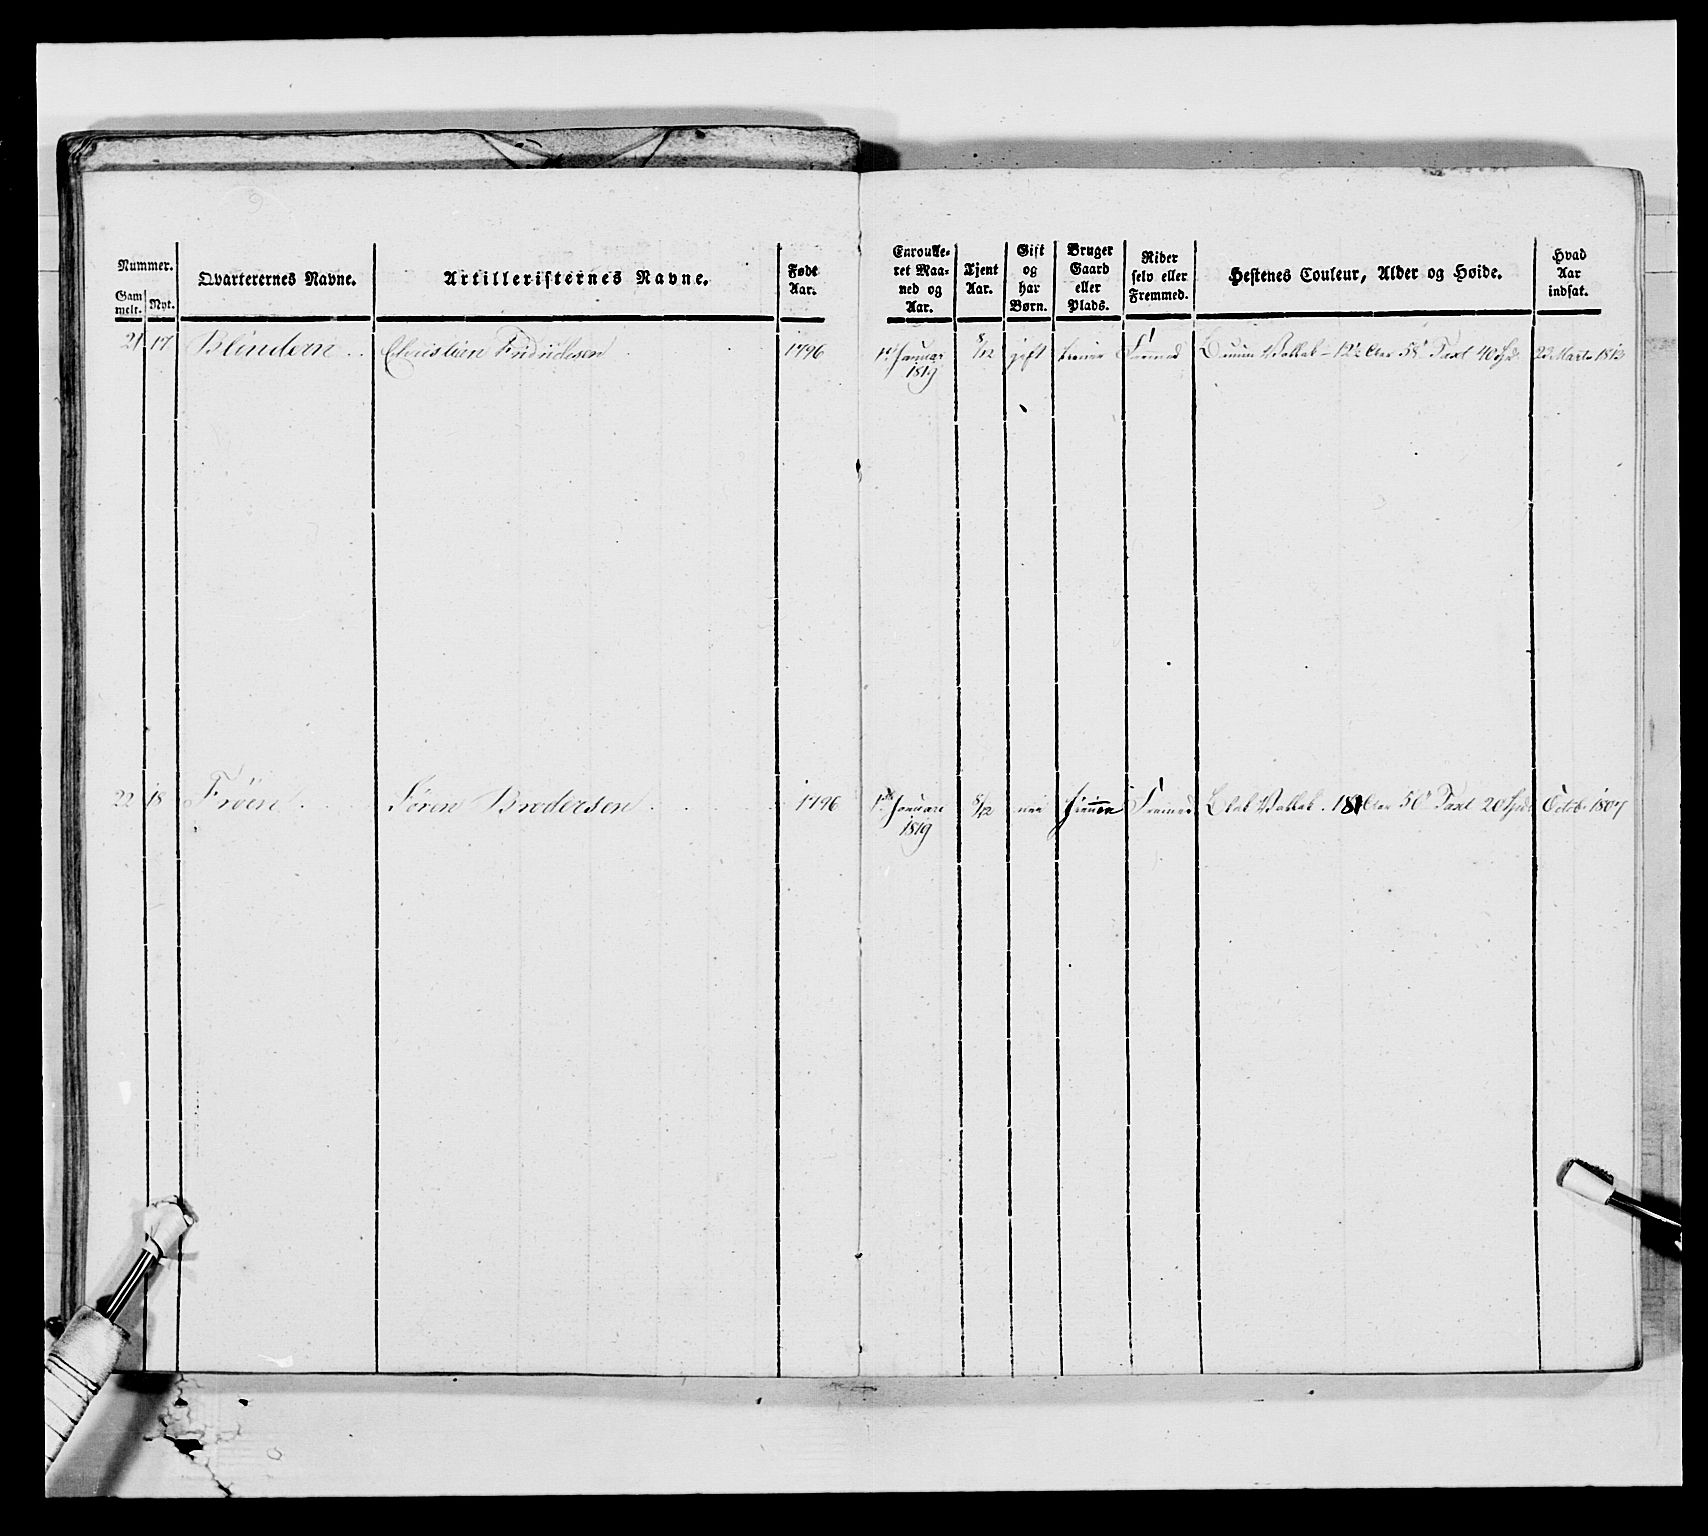 Nummer.
Gam melt. Nyt.
Qvarterernes Navne.
Artilleristernes Navne.
Født Aar.
Enroulle-
ret Maa-
ned og
Aar.
Tjent Aar.
Gift
og
har
Børn.
Bruger
Gaard
eller
Plads.
Rider
selv eller
Fremmed.
Hestenes Couleur, Alder og Høide.
Hvad
Aar
indsat.
21 17 Blindern Christian Fridrichsen 1796 1st Januar 1819 8/12 gift Fremed Bruun Vallak 12 1/2 58" Taxt 40 Spd. 23 Marts 1813
22 18 Frøen Søren Brodersen 1796 1st Januar 1819 8/12 nei Fremed Vallak 50" Taxt 20 Spd. Octob. 1807